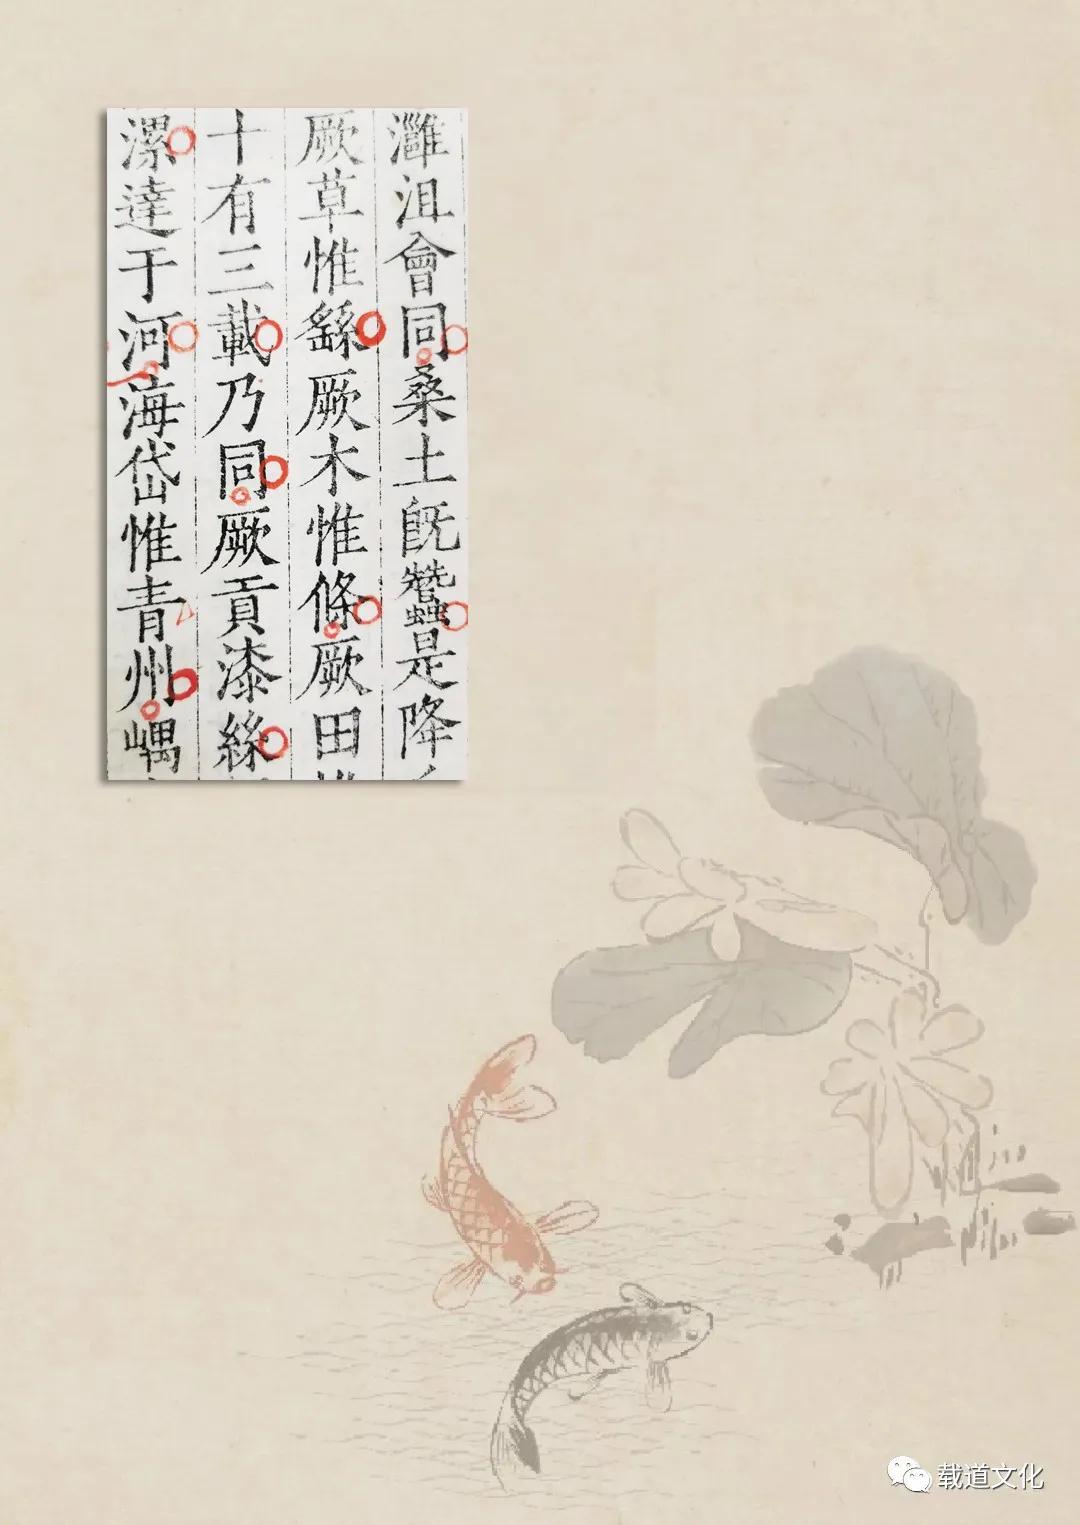 灉沮會同桑土旣蠶是降
厥草惟繇厥木惟條厥田
十有三載乃同厥貢漆絲
漯達于河海岱惟青州嵎
载道文化